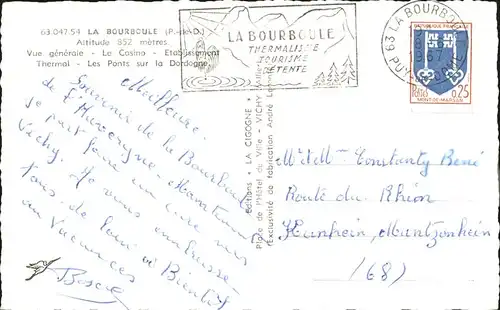 63.047.54 LA BOURBOULE (P.-de-D.)
Altitude 852 mètres
Vue générale - Le Casino - Etablissement
Thermal - Les Ponts sur la Dordogne.
LA BOURBOULE
THERMALISME
TOURISME
DETENTE
63 LA BOURBOULE
PUY DE DOME
REPUBLIQUE FRANCAISE
Postes 0,25
MONT-DE-MARSAN
Editions « LA CIGOGNE »
Place de l'Hôtel du Ville - VICHY
Exclusivité de fabrication André
Meilleure
Souvenir de la Bourboule
de l'Auvergne. Maintenant
je part faire un cure
Vichy. Je vous embrasse
tous. de loin
au Vacances Bientôt
Mr et Mme Constanty René
Route du Rhin
(68)